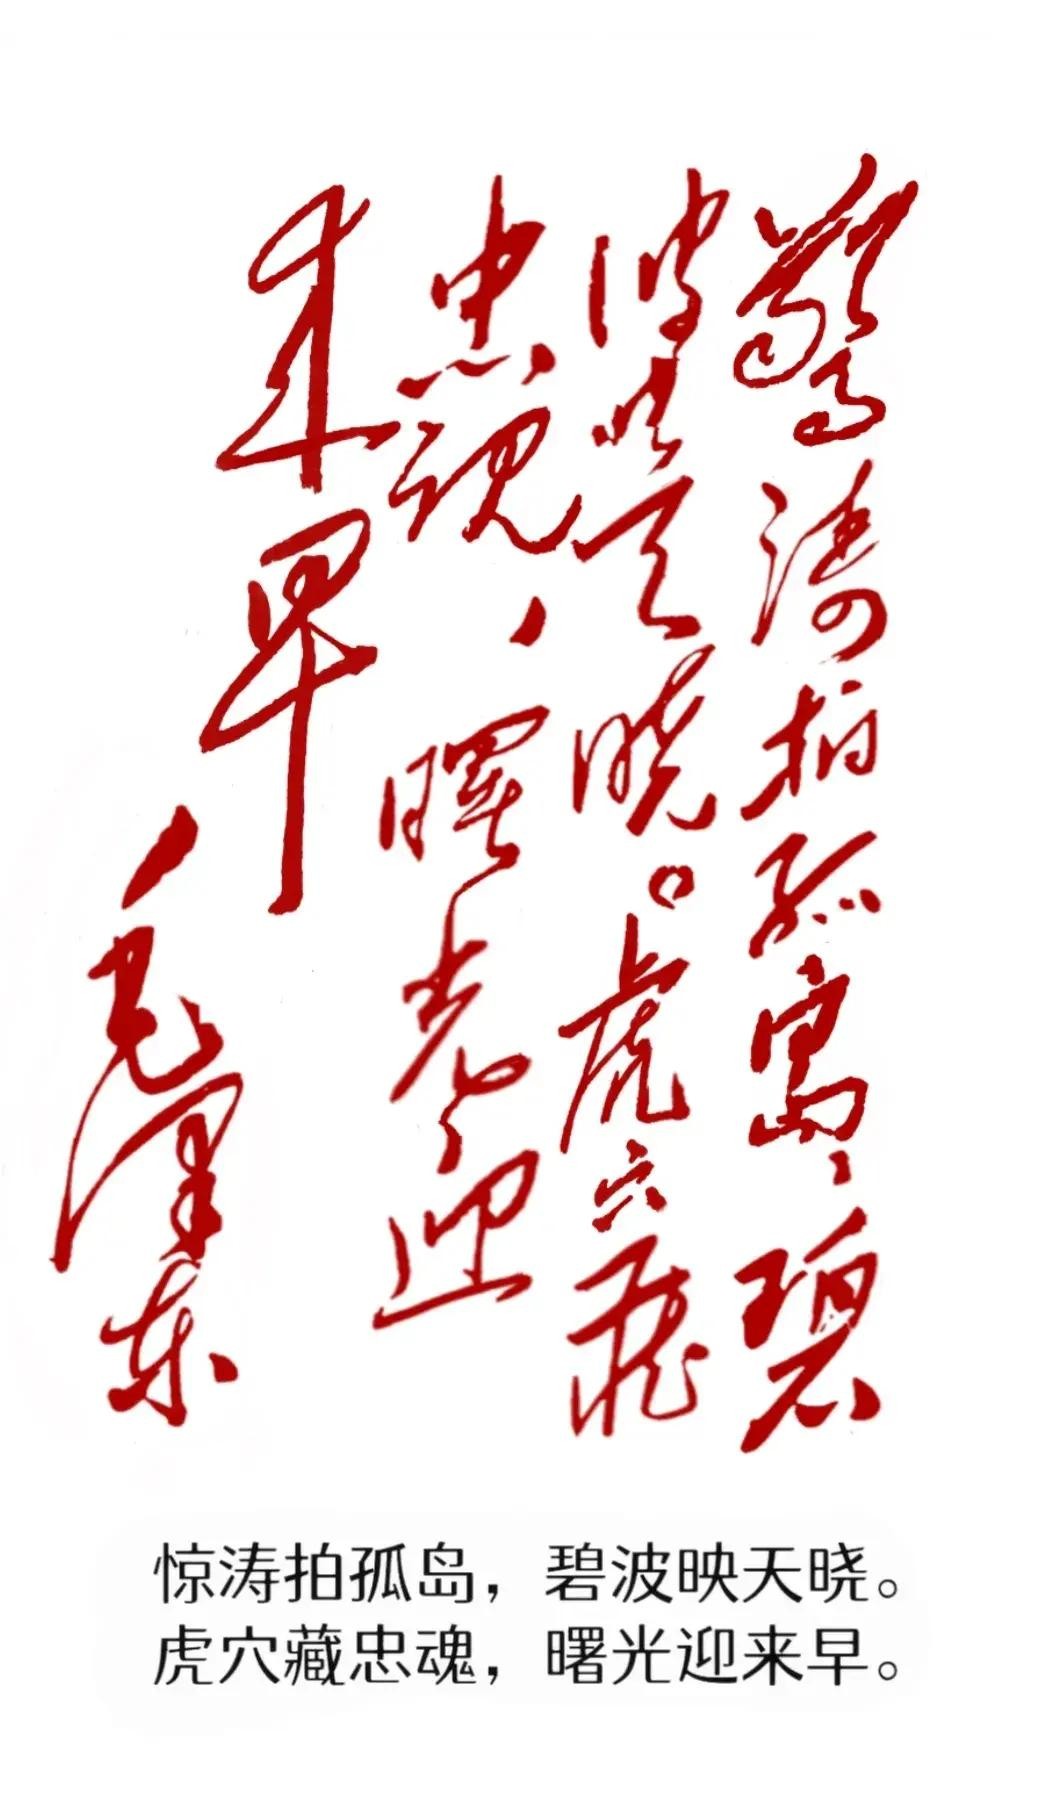 驚涛拍孤島，碧
波映天晓。虎穴藏
忠魂，曙光迎
来早
毛泽东
惊涛拍孤岛，碧波映天晓。
虎穴藏忠魂，曙光迎来早。